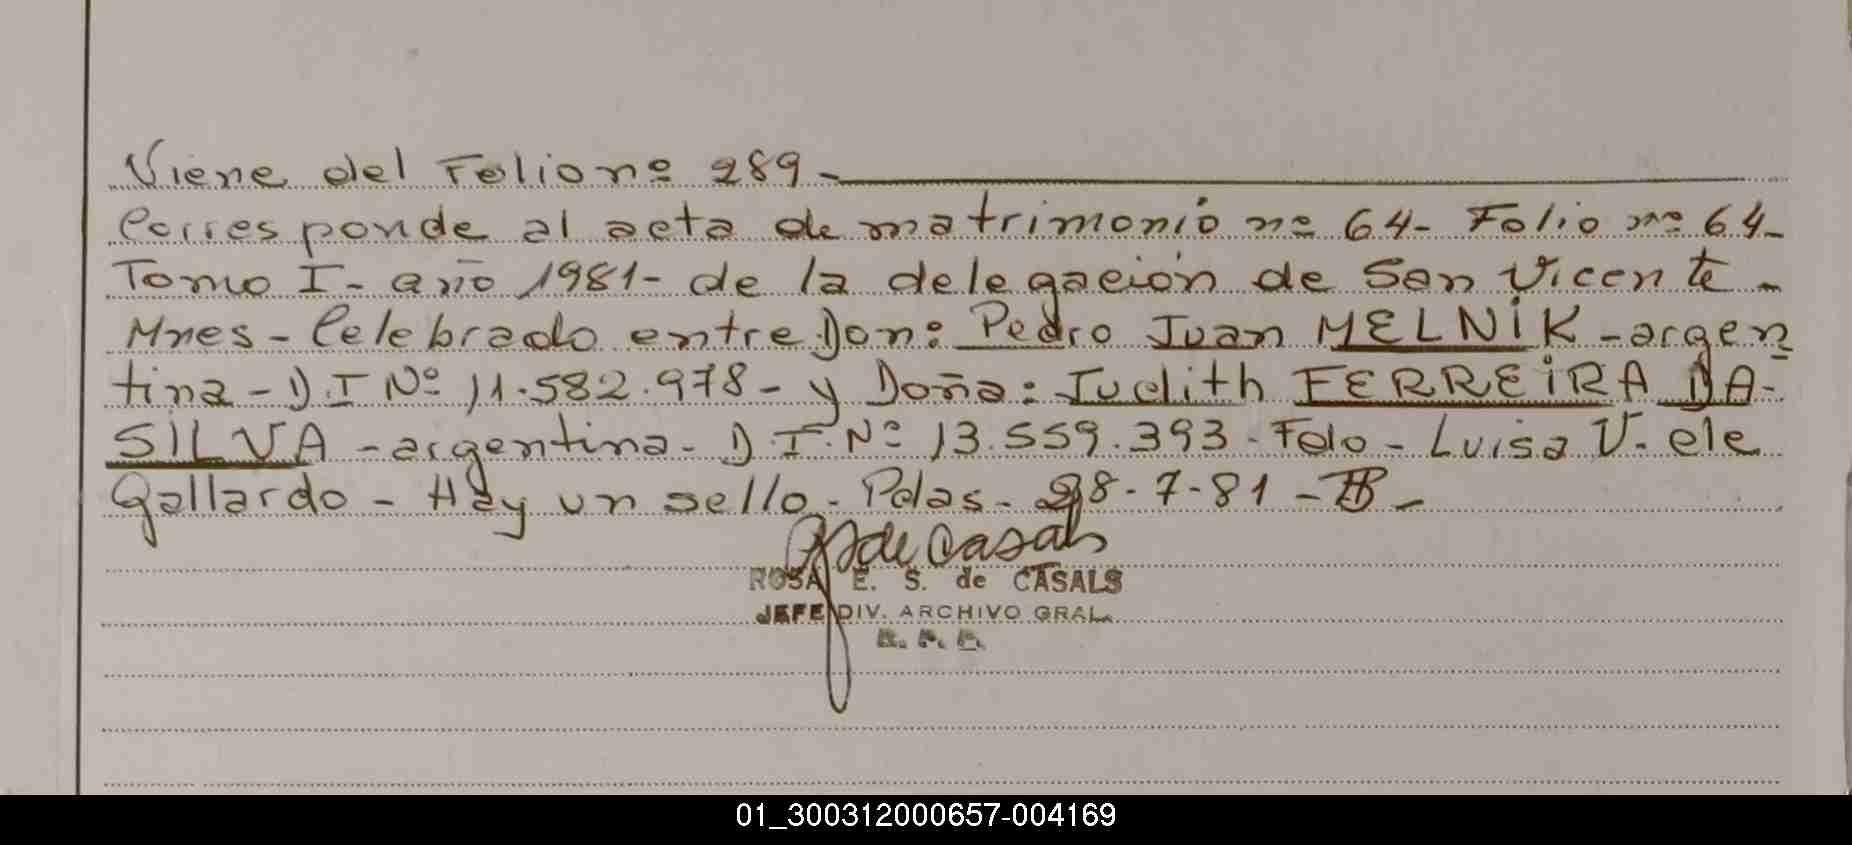 Viene del Folio nº 289-
Corresponde al acta de matrimonio nº 64- Folio nº 64-
Tomo I- año 1981- de la delegación de San Vicente -
Mnes- Celebrado entre Don: Pedro Juan MELNIK -argen
tina- D I Nº 11.582.978- y Doña: Judith FERREIRA DA-
SILVA -argentina- D.I.Nº 13.559.393- Fdo- Luisa V. de
Gallardo - Hay un sello- Pdas- 28-7-81 -
de Casals
ROSA E. S. de CASALS
JEFE DIV. ARCHIVO GRAL.
R. P. P.
01_300312000657-004169